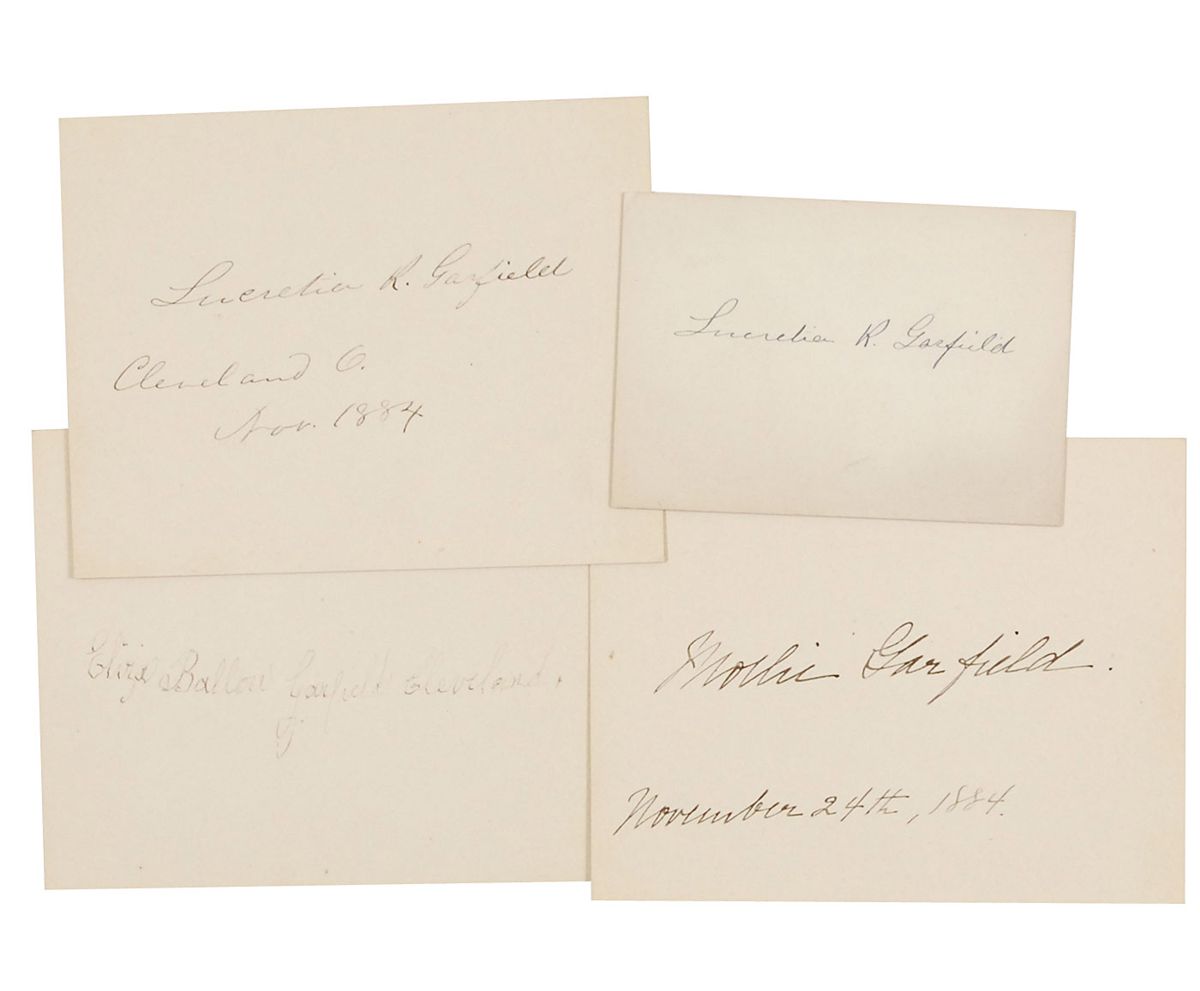 Lucretia R. Garfield
Cleveland O.
Nov. 1884
Lucretia R. Garfield
Eliza Ballou Garfield Cleveland.
Mollie Garfield.
November 24th, 1884.